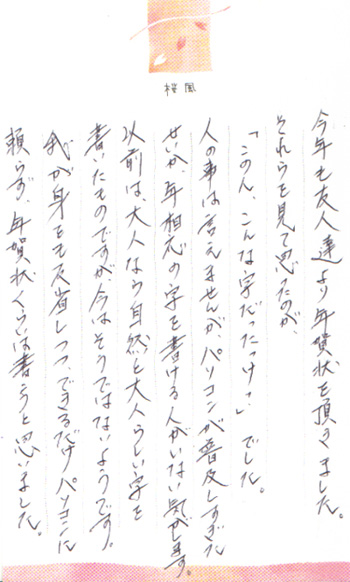 桜風
今年も友人達より年賀状を頂きました。
それらを見て思ったのが、
「この人、こんな字だったっけ?」でした。
人の事は言えませんが、パソコンが普及しすぎた
せいか、年相応の字を書ける人がいない気がします。
以前は、大人なら自然と大人らしい字を
書いたものですが今はそうではないようです。
我が身をも反省しつつ、できるだけパソコンに
頼らず、年賀状くらいは書こうと思いました。